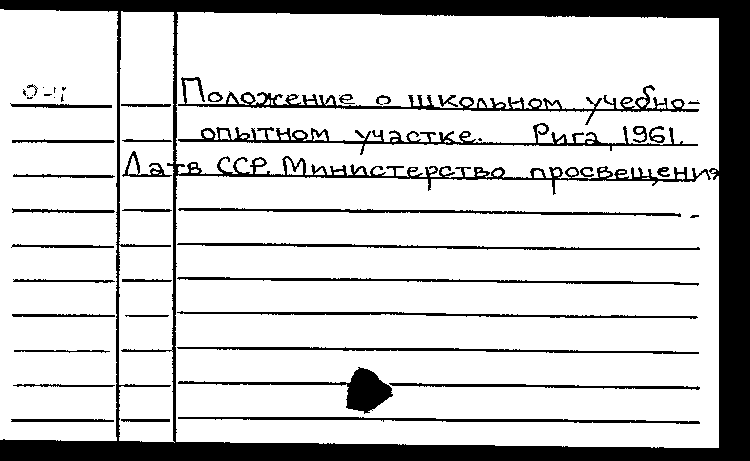 Положение о школьном учебно-
опытном участке. Рига, 1961.
Латв ССР. Министерство просвещения